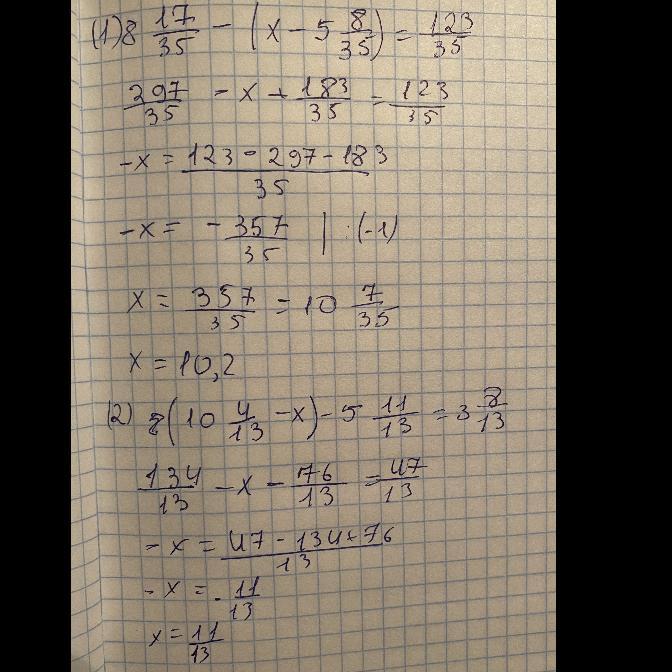 (1) 8 17/35 - (x - 5 8/35) = 123/35
297/35 - x + 183/35 = 123/35
-x = (123 - 297 - 183)/35
-x = - 357/35 | :(-1)
x = 357/35 = 10 7/35
x = 10,2
(2) (10 4/13 - x) - 5 11/13 = 3 8/13
134/13 - x - 76/13 = 47/13
- x = (47 - 134 + 76)/13
- x = - 11/13
x = 11/13